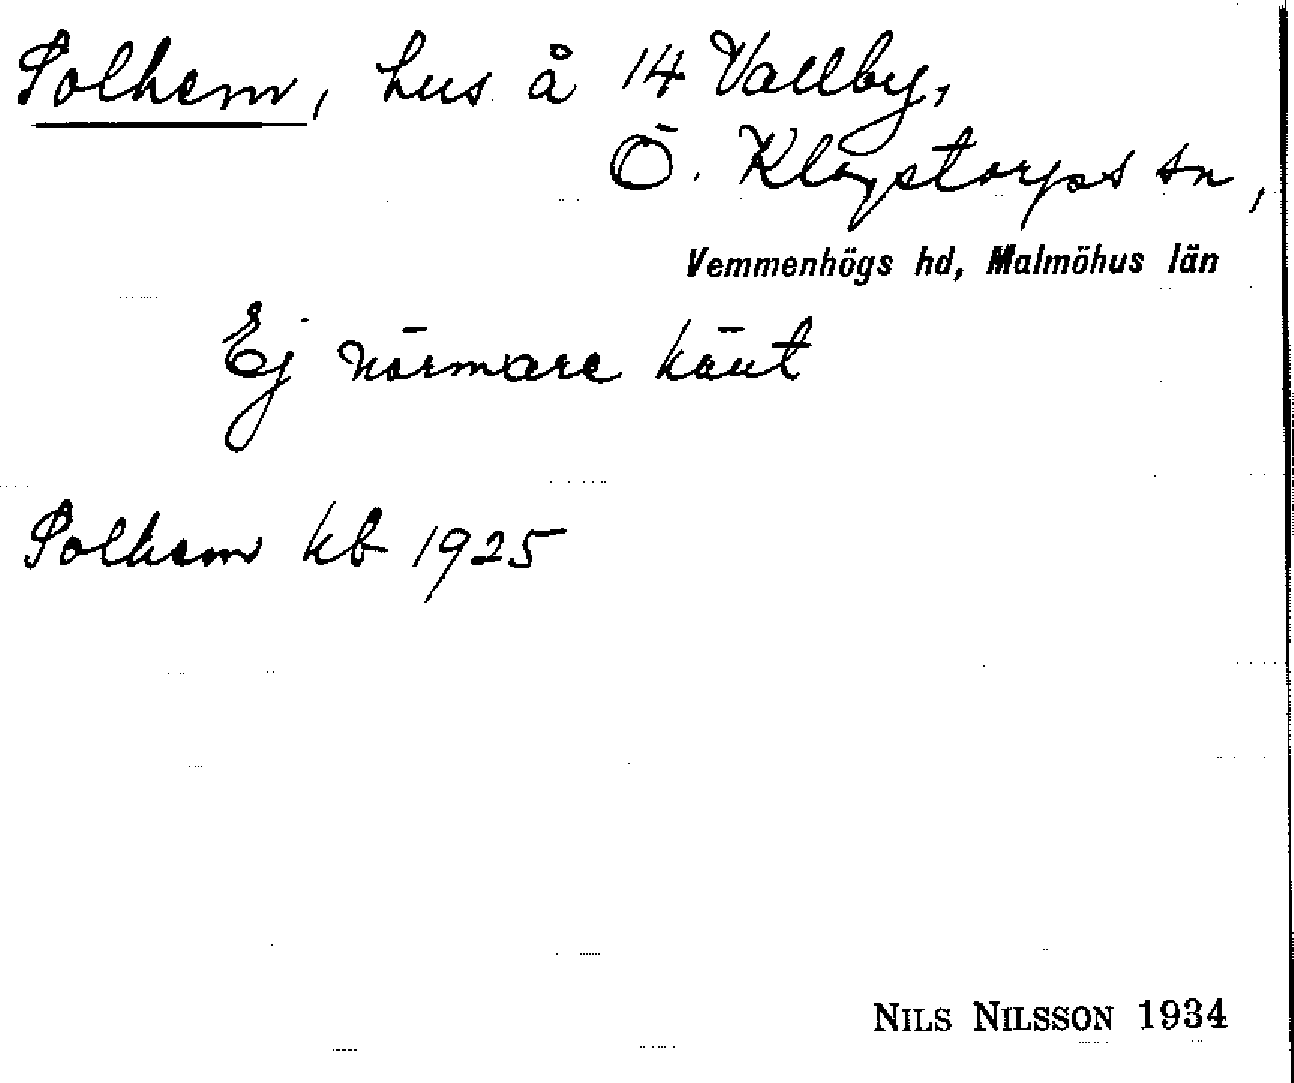 Solhem, hus å 14 Vallby,
Ö. Klagstorps sn,
Vemmenhögs hd, Malmöhus län
Ej närmare känt
Solhem kb 1925
NILS NILSSON 1934